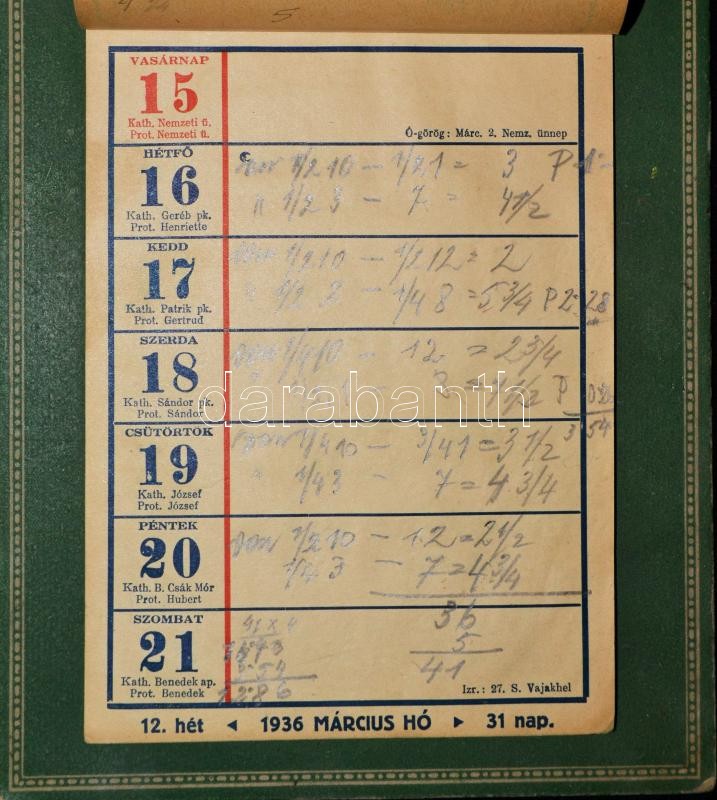 5
VASÁRNAP
15
Kath. Nemzeti ü.
Prot. Nemzeti ü.
Ó-görög: Márc. 2. Nemz. ünnep
HÉTFŐ
16
Kath. Geréb pk.
Prot. Henriette
1/2 10 — 1/2 1 = 3 P
" 1/2 3 — 7 = 4 1/2
KEDD
17
Kath. Patrik pk.
Prot. Gertrud
von 1/2 10 — 1/2 12 = 2
" 1/2 — 1/4 8 = 5 3/4 P 2.28
SZERDA
18
Kath. Sándor pk.
Prot. Sándor
von 1/4 10 — 12 = 2 3/4
8 = 4 1/2 P
3 54
darabanth
CSÜTÖRTÖK
19
Kath. József
Prot. József
von 1/4 10 — 3/4 1 = 3 1/2
" 1/4 3 — 7 = 4 3/4
PÉNTEK
20
Kath. B. Csák Mór
Prot. Hubert
von 1/2 10 — 12 = 2 1/2
1/4 3 — 7 = 4 3/4
SZOMBAT
21
Kath. Benedek ap.
Prot. Benedek
36
5
41
Izr.: 27. S. Vajakhel
12. hét ◄ 1936 MÁRCIUS HÓ ► 31 nap.